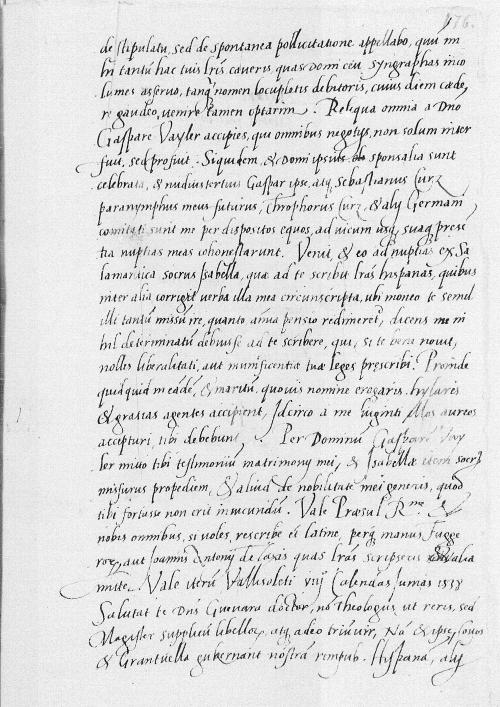 176.
de stipulatu, sed de spontanea pollicitatione appellabo, qui mi
hi tantū hac tuis lr̄is caveris, quas domi ceu syngraphas inco
lumes asservo, tanq̄ nomen locupletis debitoris, cuius diem cæde
re gaudeo, venire tamen optarim. Reliqua omnia a Dno
Gaspare Vayler accipies, qui omnibus negotijs, non solum inter
fuit, sed profuit. Siquidem, & domi ipsius sponsalia sunt
celebrata, & nudiustertius Gaspar ipse, atq̢ Sebastianus Curz
paranymphus meus futurus, Chrophorus Curz, & alij Germani
comitati sunt me per dispositos equos, ad vicum usq̢, suaq̢ presē
tia nuptias meas cohonestarunt. Venit, & eo ad nuptias ex Sa
lamantica socrus Isabella, quæ ad te scribit lr̄as hispanas, quibus
inter alia corrigit verba illa mea circunscripta, ubi moneo te semel
illi tantū missū ire, quanto annua pensio redimeret, dicens me ni
hil determinatū debuisse ad te scribere, qui, si te bene novit,
nolles liberalitati, aut munificentiæ tuæ leges prescribi. Proinde
quidquid in eadē, & maritū quovis nomine erogaris, hylaris
& gratias agentes accipient, Idcirco a me viginti illos aureos
accipturi tibi debebunt. Per Dominū Gasparē Vay
ler mitto tibi testimoniū matrimonij mei, & Isabellæ item socr̄
missurus propediem, & alia de nobilitate mei generis, quod
tibi fortasse non erit iniucundū. Vale Præsul R.me &
nobis omnibus, si voles, rescribe ei latine, perq̢ manus Fugge
ror̄, aut Joannis Antonij de lr̄as scripseris & alia
mitte. Vale iterū Vallisoleti viij Calendas Junias 1538
Salutat te Dn̄s Guevara doctor, nō Theologus ut reris, sed
Magister supplicū libellor̄, atq̢ adeo triūvir, Nā & ipse, Covos
& Granvella gubernant nostrā rempub. Hispanā, alij